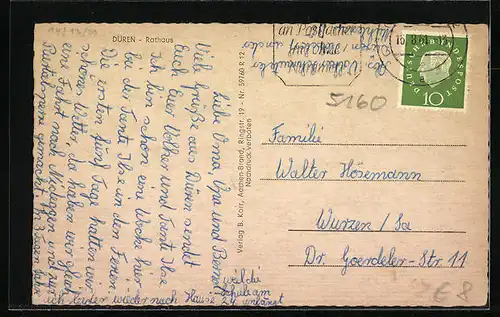 DÜREN - Rathaus
Liebe Oma, Opa und Bernd
Viele Grüße aus Düren sendet
Euch Euer Volker und Tante Ilse
Ich bin schon eine Woche hier
bei der Tante Ilse in den Ferien.
Die ersten fünf Tage hatten wir
schönes Wetter, da haben wir gleich
eine Fahrt nach Nideggen und zur
gemacht. In 3 Tagen fahre
ich leider wieder nach Hause,
welche
Schule am
24. anfängt
Verlag B. Korr, Aachen-Brand, Ringstr. 19 - Nr. 59760 R 12
Nachdruck verboten
16.8.61
DEUTSCHE BUNDESPOST
10
5160
Familie
Walter Hösemann
Wurzen / Sa
Dr. Goerdeler-Str 11
€ 8